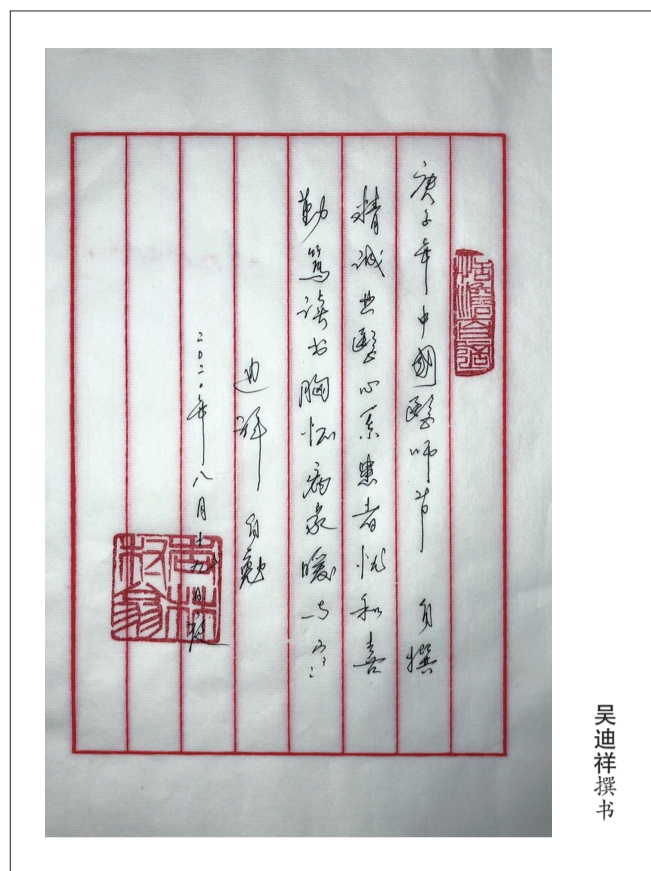 庚子年中國醫師节 自撰
精诚业醫心系患者忧和喜
勤篤读书胸怀病家暖与寒
迪祥自勉
二〇二〇年八月十九日
恬澹自适
吴迪祥撰书